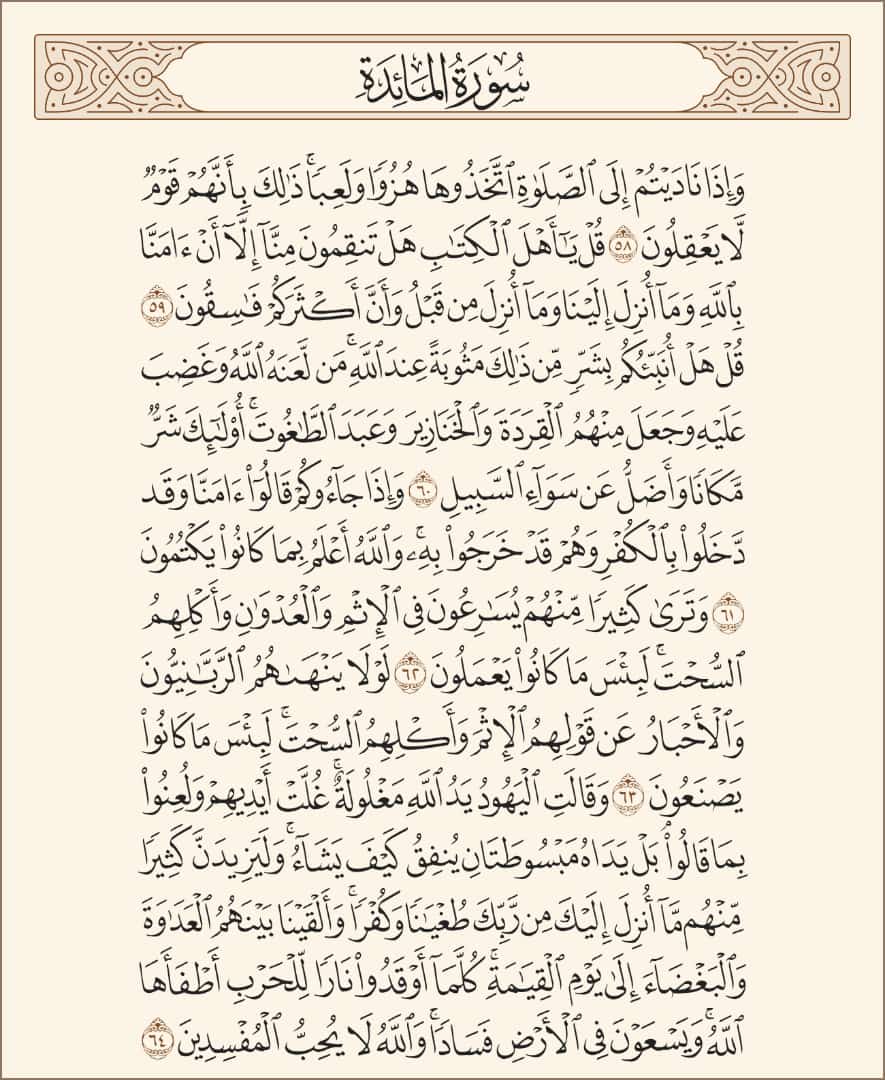 سُورَةُ المَائِدَةِ
وَإِذَا نَادَيْتُمْ إِلَى ٱلصَّلَوٰةِ ٱتَّخَذُوهَا هُزُوًا وَلَعِبًا ۚ ذَٰلِكَ بِأَنَّهُمْ قَوْمٌ
لَّا يَعْقِلُونَ ٥٨ قُلْ يَـٰٓأَهْلَ ٱلْكِتَـٰبِ هَلْ تَنقِمُونَ مِنَّآ إِلَّآ أَنْ ءَامَنَّا
بِٱللَّهِ وَمَآ أُنزِلَ إِلَيْنَا وَمَآ أُنزِلَ مِن قَبْلُ وَأَنَّ أَكْثَرَكُمْ فَـٰسِقُونَ ٥٩
قُلْ هَلْ أُنَبِّئُكُم بِشَرٍّ مِّن ذَٰلِكَ مَثُوبَةً عِندَ ٱللَّهِ ۚ مَن لَّعَنَهُ ٱللَّهُ وَغَضِبَ
عَلَيْهِ وَجَعَلَ مِنْهُمُ ٱلْقِرَدَةَ وَٱلْخَنَازِيرَ وَعَبَدَ ٱلطَّـٰغُوتَ ۚ أُو۟لَـٰٓئِكَ شَرٌّ
مَّكَانًا وَأَضَلُّ عَن سَوَآءِ ٱلسَّبِيلِ ٦٠ وَإِذَا جَآءُوكُمْ قَالُوٓا۟ ءَامَنَّا وَقَد
دَّخَلُوا۟ بِٱلْكُفْرِ وَهُمْ قَدْ خَرَجُوا۟ بِهِۦ ۚ وَٱللَّهُ أَعْلَمُ بِمَا كَانُوا۟ يَكْتُمُونَ
٦١ وَتَرَىٰ كَثِيرًا مِّنْهُمْ يُسَـٰرِعُونَ فِى ٱلْإِثْمِ وَٱلْعُدْوَٰنِ وَأَكْلِهِمُ
ٱلسُّحْتَ ۚ لَبِئْسَ مَا كَانُوا۟ يَعْمَلُونَ ٦٢ لَوْلَا يَنْهَىٰهُمُ ٱلرَّبَّـٰنِيُّونَ
وَٱلْأَحْبَارُ عَن قَوْلِهِمُ ٱلْإِثْمَ وَأَكْلِهِمُ ٱلسُّحْتَ ۚ لَبِئْسَ مَا كَانُوا۟
يَصْنَعُونَ ٦٣ وَقَالَتِ ٱلْيَهُودُ يَدُ ٱللَّهِ مَغْلُولَةٌ ۚ غُلَّتْ أَيْدِيهِمْ وَلُعِنُوا۟
بِمَا قَالُوا۟ ۘ بَلْ يَدَاهُ مَبْسُوطَتَانِ يُنفِقُ كَيْفَ يَشَآءُ ۚ وَلَيَزِيدَنَّ كَثِيرًا
مِّنْهُم مَّآ أُنزِلَ إِلَيْكَ مِن رَّبِّكَ طُغْيَـٰنًا وَكُفْرًا ۚ وَأَلْقَيْنَا بَيْنَهُمُ ٱلْعَدَٰوَةَ
وَٱلْبَغْضَآءَ إِلَىٰ يَوْمِ ٱلْقِيَـٰمَةِ ۚ كُلَّمَآ أَوْقَدُوا۟ نَارًا لِّلْحَرْبِ أَطْفَأَهَا
ٱللَّهُ ۚ وَيَسْعَوْنَ فِى ٱلْأَرْضِ فَسَادًا ۚ وَٱللَّهُ لَا يُحِبُّ ٱلْمُفْسِدِينَ ٦٤